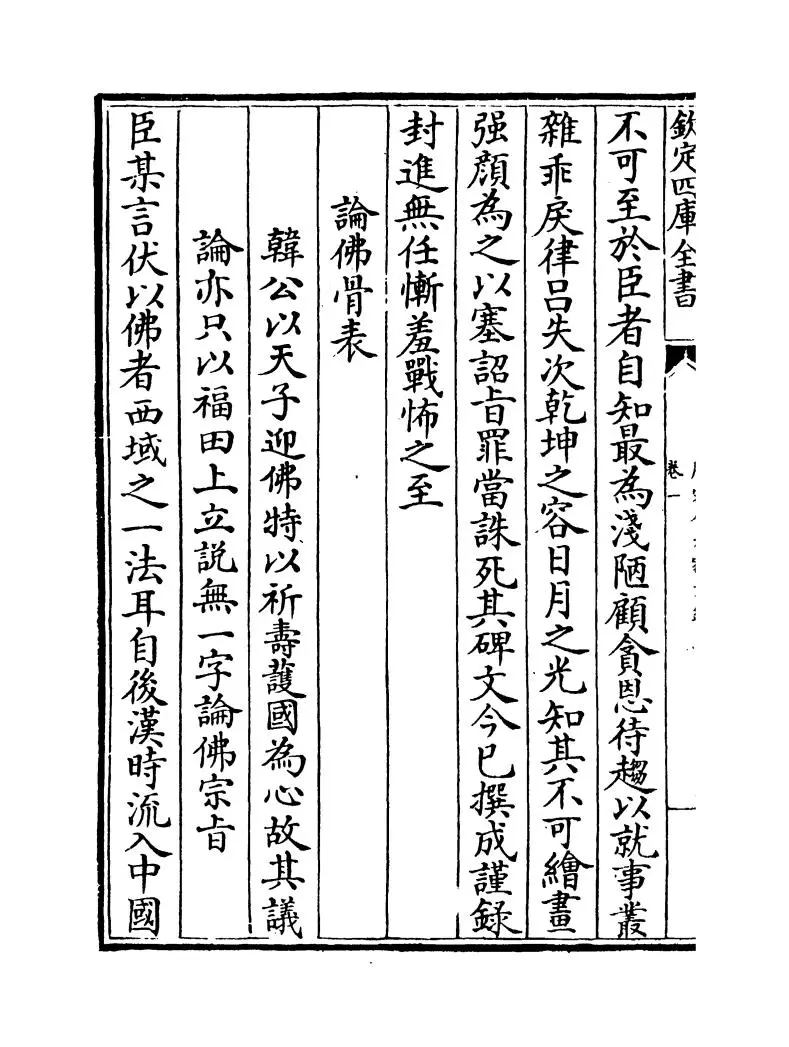 欽定四庫全書
卷一
不可至於臣者自知最為淺陋顧貪恩待趨以就事叢
雜乖戾律吕失次乾坤之容日月之光知其不可繪畫
强顔為之以塞詔㫖罪當誅死其碑文今已撰成謹録
封進無任慚羞戰怖之至
論佛骨表
韓公以天子迎佛特以祈壽䕶國為心故其議
論亦只以福田上立説無一字論佛宗㫖
臣某言伏以佛者西域之一法耳自後漢時流入中國